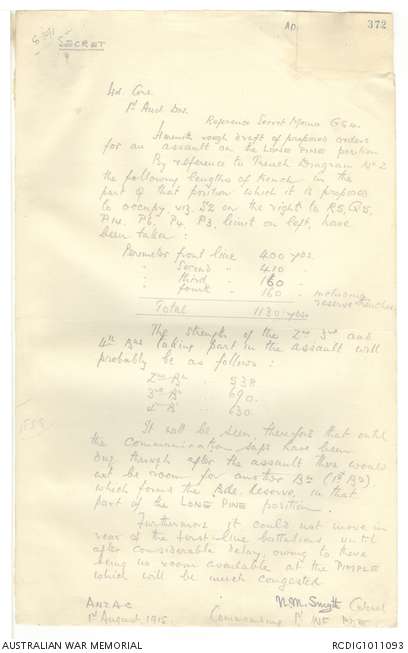 AD
372
SECRET
Hd. Qrs.
1st Aust Div.
Reference Secret Memo G.S.4.
Herewith rough draft of proposed orders
for an assault on the LONE PINE position
By reference to Trench Diagram No 2
the following lengths of trench in the
part of that position which it is proposed
to occupy viz. S2 on the right to R5, Q5,
P14, P6, P4, P3, limit on left, have
been taken :
Perimeter front line 400 yds.
" Second " 410 "
" third " 160 "
" fourth " 160 " including
reserve trenches
Total 1130 yds
The strength of the 2nd 3rd and
4th Bns taking part in the assault will
probably be as follows :
2nd Bn 538
3rd Bn 690.
4th Bn 630.
It will be seen, therefore that until
the communication saps have been
dug through after the assault there would
not be room for another Bn (1st Bn)
which forms the Bde. Reserve, in that
part of the LONE PINE position.
Furthermore it could not move in
rear of the first line battalions until
after considerable delay, owing to there
being no room available at the PIMPLE
which will be much congested
ANZAC
1st August 1915.
N.M. Smyth Colonel
Commanding 1st Inf Bde
AUSTRALIAN WAR MEMORIAL
RCDIG1011093